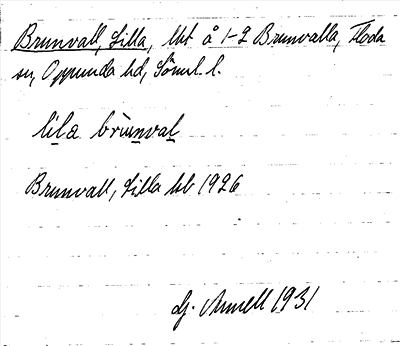 Brunvall, Lilla, lht å 1-2 Brunvalla, Floda
sn, Oppunda hd, Söml. l.
lila brùnval
Brunvall, Lilla hb 1926
Gj. Arnell 1931